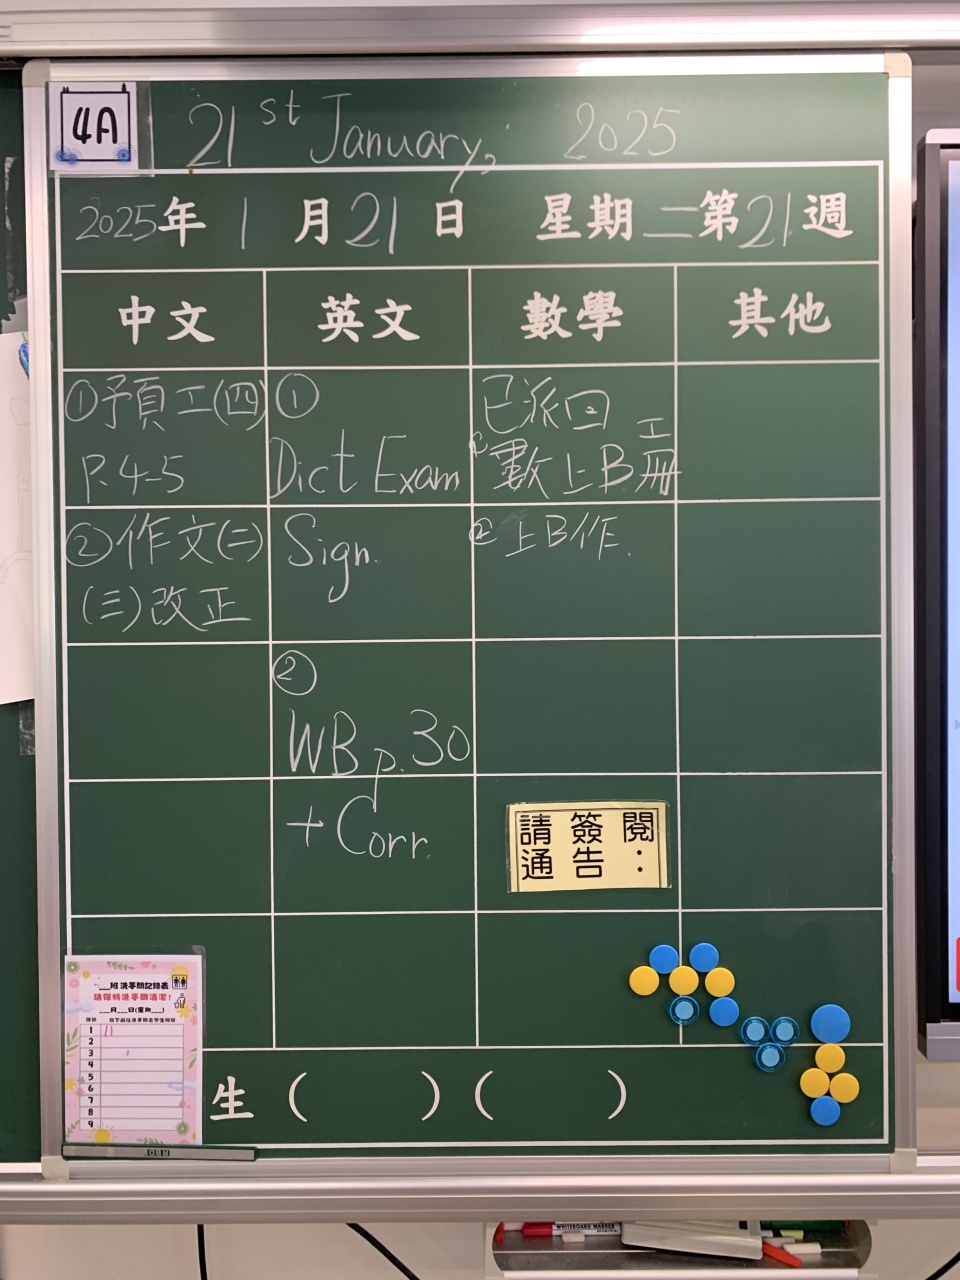 4A
21st January, 2025
2025年1月21日 星期二第21週
中文 英文 數學 其他
①預工(四)
P.4-5
②作文(二)
(三)改正
①
Dict Exam
Sign.
②
WB p.30
+ Corr.
已派回
數上B工冊
② 上B作.
請簽閱
通告：
班洗手間記錄表
請保持洗手間清潔!
月 日(星期 )
1
2
3
4
5
6
7
8
9
生( )( )
WHITEBOARD MARKER